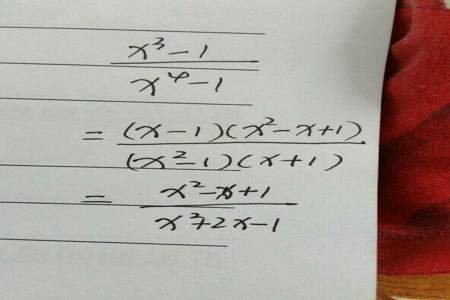 x³-1
x⁴-1
= (x-1)(x²-x+1)
(x²-1)(x+1)
= x²-x+1
x²+2x-1